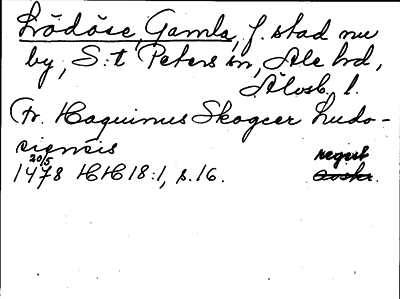 Lödöse, Gamla, f. stad nu
by, S:t Peters sn, Ale hd,
Älvsb. l.
Fr. Haquinus Skogeer Ludo-
siensis
20/5
1478 HH 18:1, s. 16. regest
avskr.